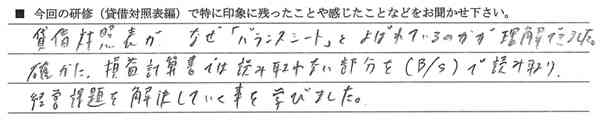 ■ 今回の研修（貸借対照表編）で特に印象に残ったことや感じたことなどをお聞かせ下さい。
貸借対照表がなぜ「バランスシート」とよばれているのかが理解できました。
確かに、損益計算書では読み取れない部分を（B/S）で読み取り、
経営課題を解決していく事を学びました。